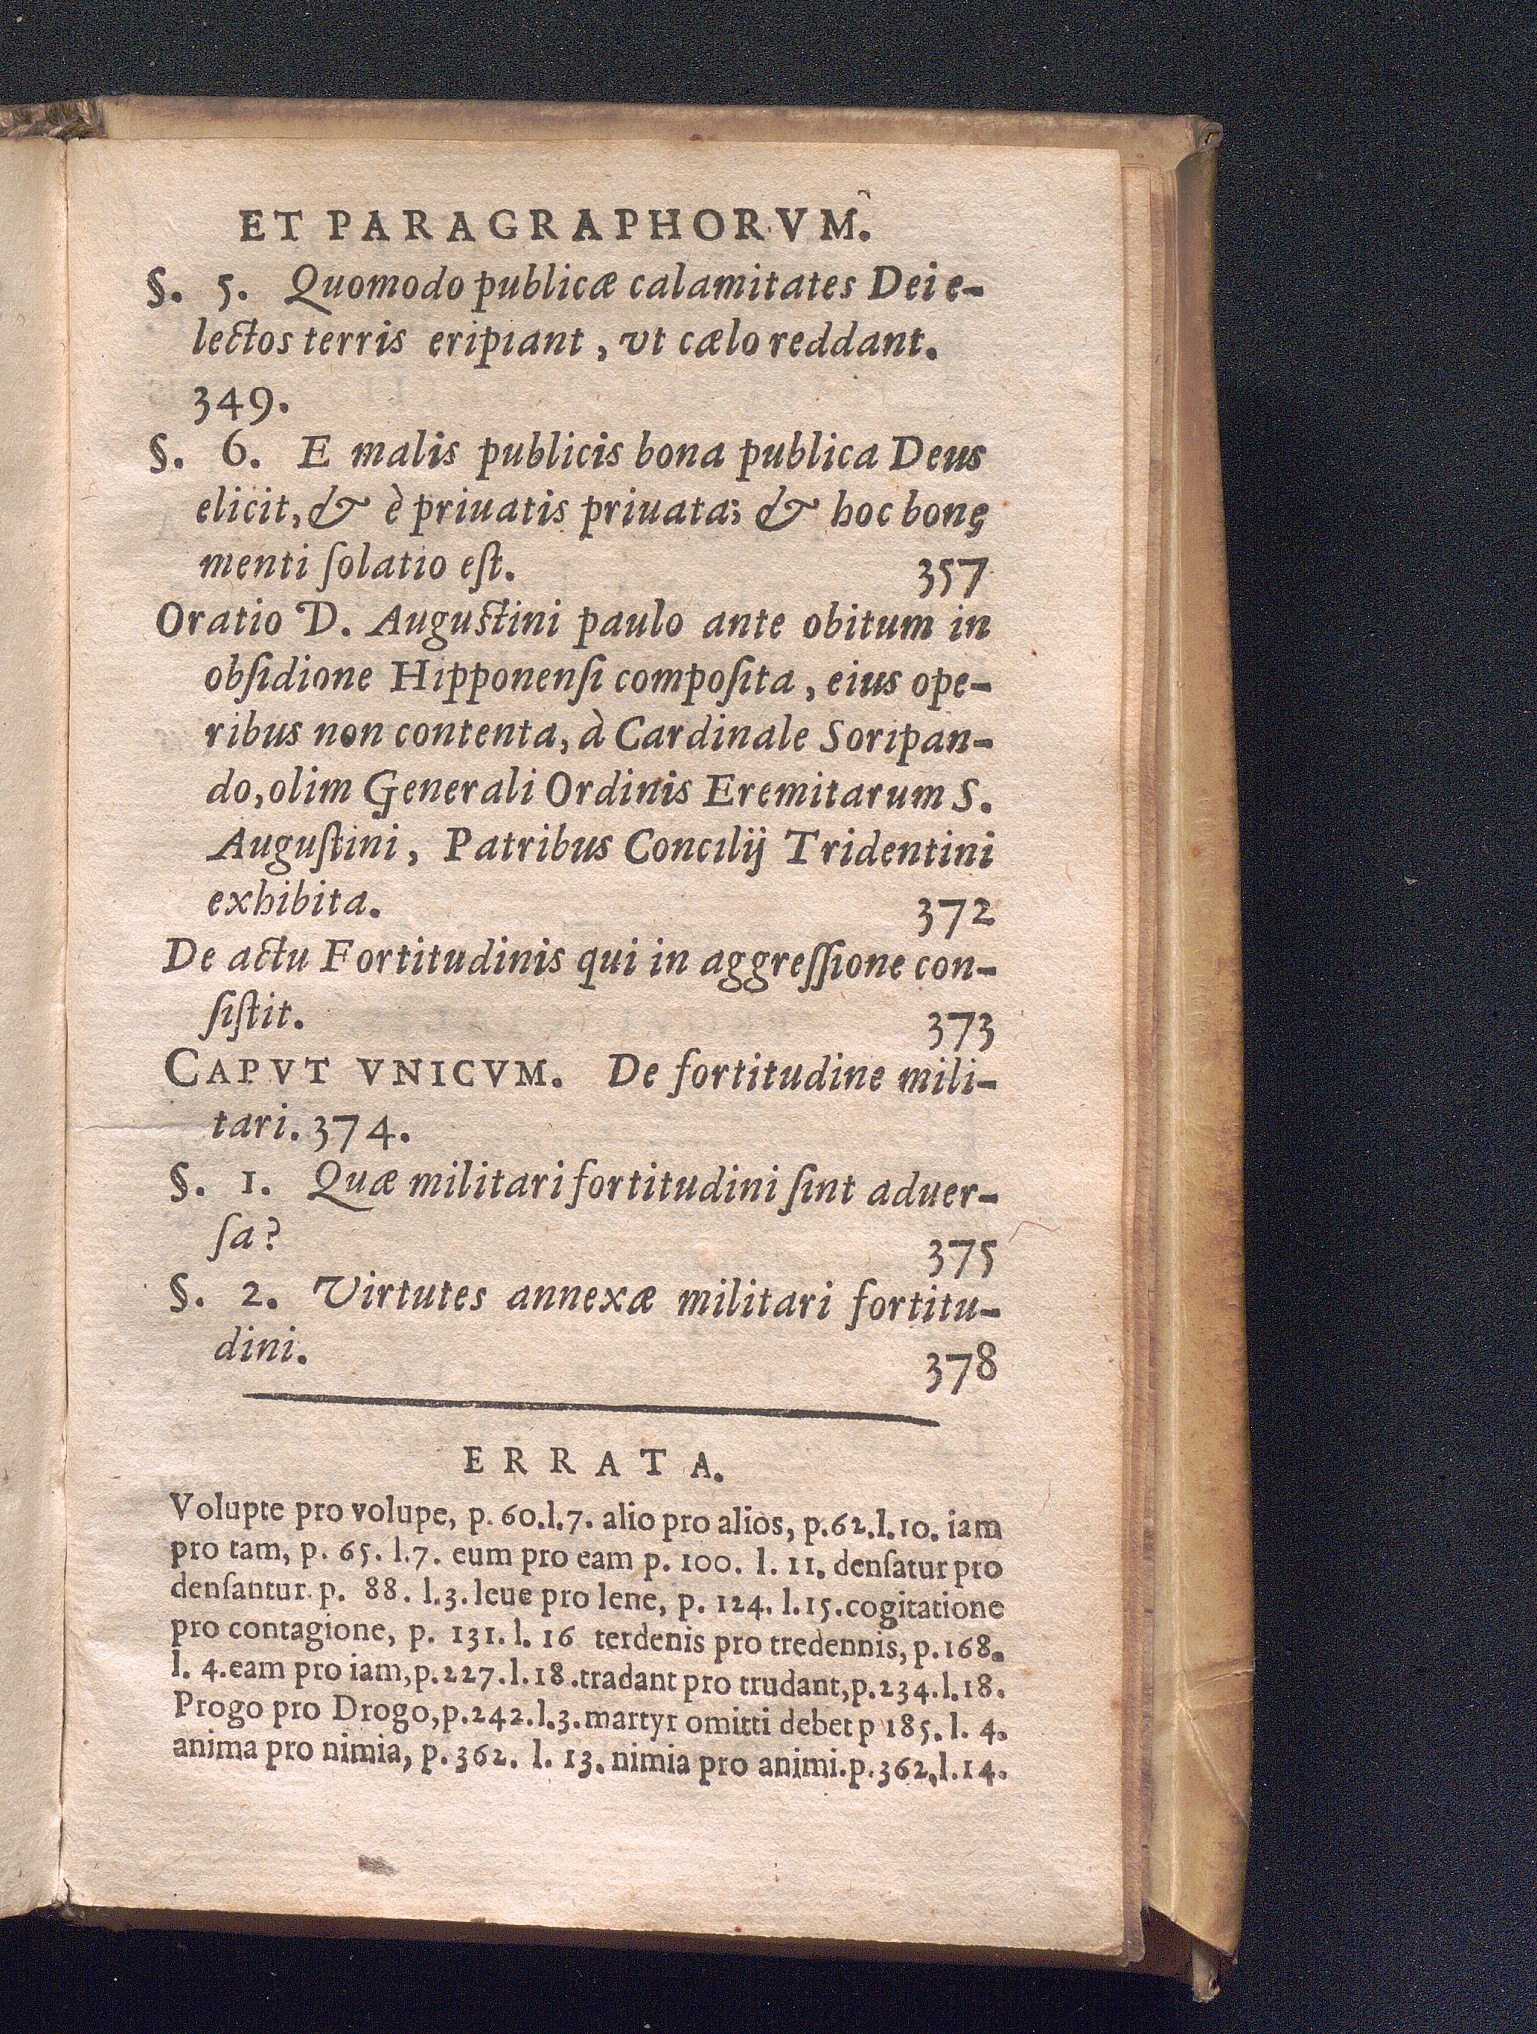 ET PARAGRAPHORVM.
§. 5. Quomodo publicæ calamitates Dei e-
lectos terris eripiant, vt cælo reddant.
349.
§. 6. E malis publicis bona publica Deus
elicit, & è priuatis priuata; & hoc bonę
menti ſolatio eſt. 357
Oratio D. Auguſtini paulo ante obitum in
obſidione Hipponenſi compoſita, eius ope-
ribus non contenta, à Cardinale Soripan-
do, olim Generali Ordinis Eremitarum S.
Auguſtini, Patribus Concilij Tridentini
exhibita. 372
De actu Fortitudinis qui in aggreſſione con-
ſiſtit. 373
CAPVT VNICVM. De fortitudine mili-
tari. 374.
§. 1. Quæ militari fortitudini ſint aduer-
ſa? 375
§. 2. Virtutes annexæ militari fortitu-
dini. 378
ERRATA.
Volupte pro volupe, p. 60.l.7. alio pro alios, p.62.l.10. iam
pro tam, p. 65. l.7. eum pro eam p. 100. l. 11. denſatur pro
denſantur. p. 88. l.3. leue pro lene, p. 124. l.15.cogitatione
pro contagione, p. 131. l. 16 terdenis pro tredennis, p.168.
l. 4.eam pro iam,p.227.l.18.tradant pro trudant,p.234.l.18.
Progo pro Drogo,p.242.l.3.martyr omitti debet p 185. l. 4.
anima pro nimia, p.362. l. 13. nimia pro animi.p.362.l.14.